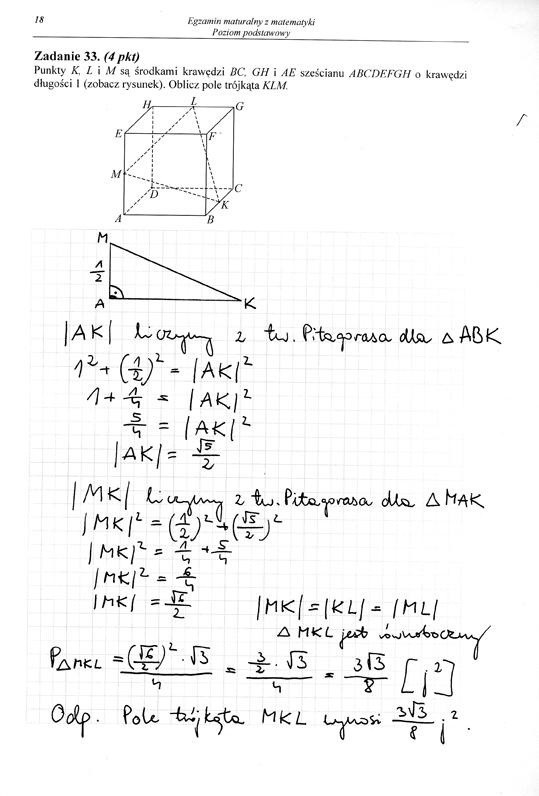 18
Egzamin maturalny z matematyki
Poziom podstawowy
Zadanie 33. (4 pkt)
Punkty K, L i M są środkami krawędzi BC, GH i AE sześcianu ABCDEFGH o krawędzi
długości 1 (zobacz rysunek). Oblicz pole trójkąta KLM.
H L G
E F
M
D C
K
A B
M
1/2
A K
|AK| liczymy z tw. Pitagorasa dla △ ABK
1² + (1/2)² = |AK|²
1 + 1/4 = |AK|²
5/4 = |AK|²
|AK| = √5/2
|MK| liczymy z tw. Pitagorasa dla △MAK
|MK|² = (1/2)² + (√5/2)²
|MK|² = 1/4 + 5/4
|MK|² = 6/4
|MK| = √6/2
|MK| = |KL| = |ML|
△ MKL jest równoboczny
P△MKL = (√6/2)² · √3 / 4 = 3/2 · √3 / 4 = 3√3/8 [j²]
Odp. Pole trójkąta MKL wynosi 3√3/8 j².